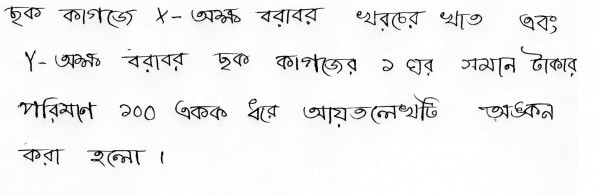 ছক কাগজে X-অক্ষ বরাবর খরচের খাত এবং
Y-অক্ষ বরাবর ছক কাগজের ১ ঘর সমান টাকার
পরিমাণ ১০০ একক ধরে আয়তলেখটি অঙ্কন
করা হলো।